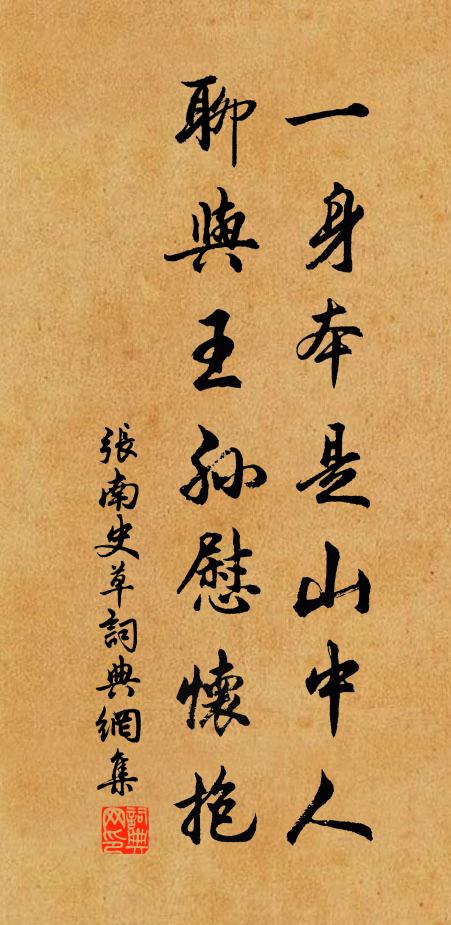 一身本是山中人
聊與王孫慰懷抱
張南史草詞典網集
詞典网印